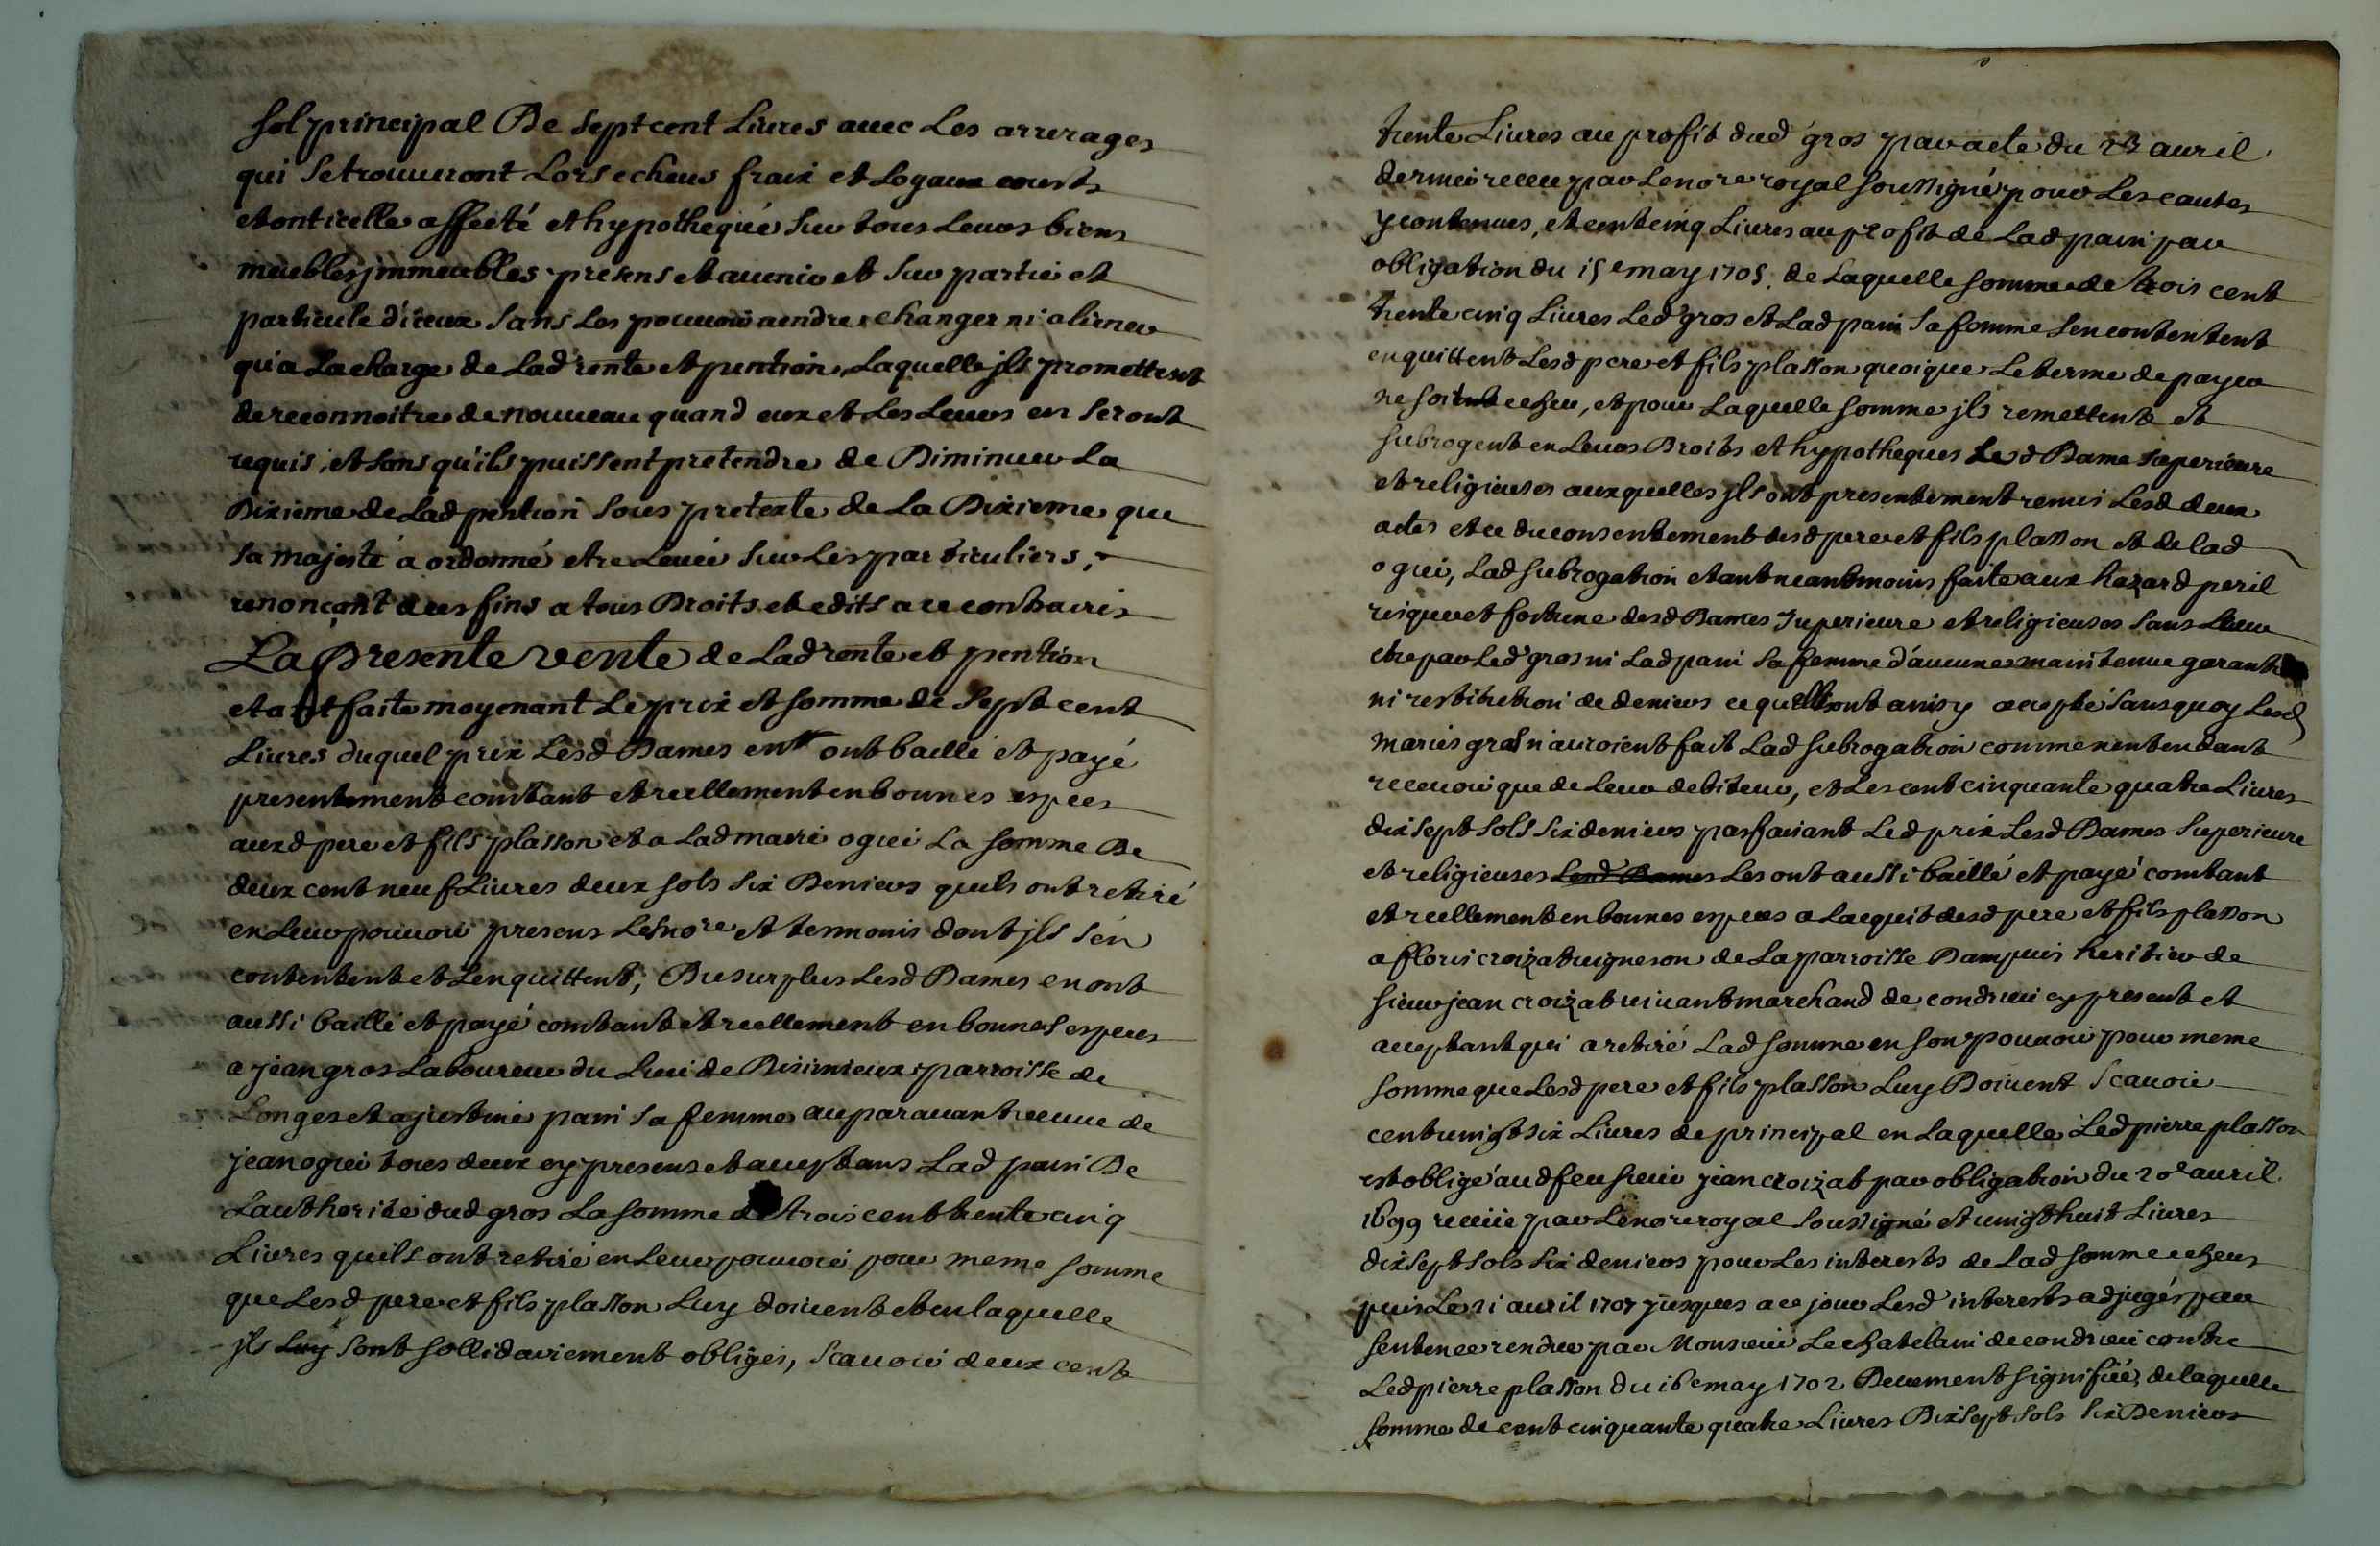 sol principal De sept cent Livres avec Les arrerages
qui se trouveront Lors echeus fraix et Logaux cousts
et ont icelle affecté et hypothequé sur tous Leurs biens
meubles jmmeubles presens et avenir et sur partie et
particule d'iceux sans Les pouvoir vendre echanger ni aliener
qu'a La charge de Lad rente et pention, Laquelle jls promettent
de reconnoitre de nouveau quand eux et Les Leurs en seront
requis, et sans qu'ils puissent pretendre de Diminuer La
Dixieme de Lad pention sous pretexte de La Dixieme que
sa majesté a ordonné etre Levée sur Les particuliers,
renonçant a ces fins a tous Droits et edits a ce contraires
La presente vente de Lad rente et pention
etant faite moyenant Le prix et somme de sept cent
Livres duquel prix Lesd Dames en ont baillé et payé
presentement comtant et reellement en bonnes especes
auxd pere et fils plasson et a Lad marie oguei La somme De
deux cent neuf Livres deux sols six Deniers quils ont retiré
en Leur pouvoir presens Lesnore et termoins dont jls s'en
contentent et Len quittent, Du surplus Lesd Dames en ont
aussi baillé et payé comtant et reellement en bonnes especes
a jean gros Laboureur du Lieu de Disimieux parroisse de
Longes et a justine pani sa femme auparavant veuve de
jean oguei tous deux cy presens et acceptans Lad pani De
Lauthorité dud gros La somme de trois cent trente cinq
Livres quils ont retiré en Leur pouvoir pour meme somme
que Lesd pere et fils plasson Luy doivent et en laquelle
jls Luy sont sollidairement obligés, scavoir deux cent
trente Livres au profit dud gros par acte du 23 avril
dernier receu par Le nore royal soussigné pour Les causes
y contenues, et cent cinq Livres au profit de Lad pani par
obligation du 15e may 1705. de Laquelle somme de trois cent
trente cinq Livres Led gros et Lad pani sa femme s'en contentent
en quittent Lesd pere et fils plasson quoique Le terme de payer
ne soit echeu, et pour Laquelle somme jls remettent et
subrogent en Leurs Droits et hypotheques Lesd Dame superieure
et religieuses auxquelles jls ont presentement remis Lesd deux
actes et ce du consentement desd pere et fils plasson et de lad
oguei, Lad subrogation etant neantmoins faite aux hazard peril
risque et fortune desd Dames superieure et religieuses sans Leur
etre par Led gros ni Lad pani sa femme d'aucune maintenue garantie
ni restitution de deniers ce qu'elles ont ainsy accepté sans quoy Lesd
mariés gros n'auroient fait Lad subrogation comme n'entendant
recevoir que de Leur debiteur, et Les cent cinquante quatre Livres
dix sept sols six deniers parfaisant Led prix Lesd Dames superieure
et religieuses Lesd Dames Les ont aussi baillé et payé comtant
et reellement en bonnes especes a Lacquit desd pere et fils plasson
a floris croizat vigneron de La parroisse Dampuis heritier de
sieur jean croizat vivant marchand de condrieu cy present et
acceptant qui a retiré Lad somme en son pouvoir pour meme
somme que Lesd pere et fils plasson Luy Doivent scavoir
cent vingt six Livres de principal en Laquelle Led pierre plasson
est obligé aud feu sieur jean croizat par obligation du 20e avril
1699 receüe par Le nore royal soussigné et vingt huit Livres
dix sept sols six deniers pour Les interests de Lad somme echeus
puis Le 21 avril 1707 jusques a ce jour Lesd interests adjugés par
sentence rendue par Monsieur Le chatelain de condrieu contre
Led pierre plasson du 16e may 1702 Deuement signifiée, de laquelle
somme de cent cinquante quatre Livres Dix sept sols six Deniers